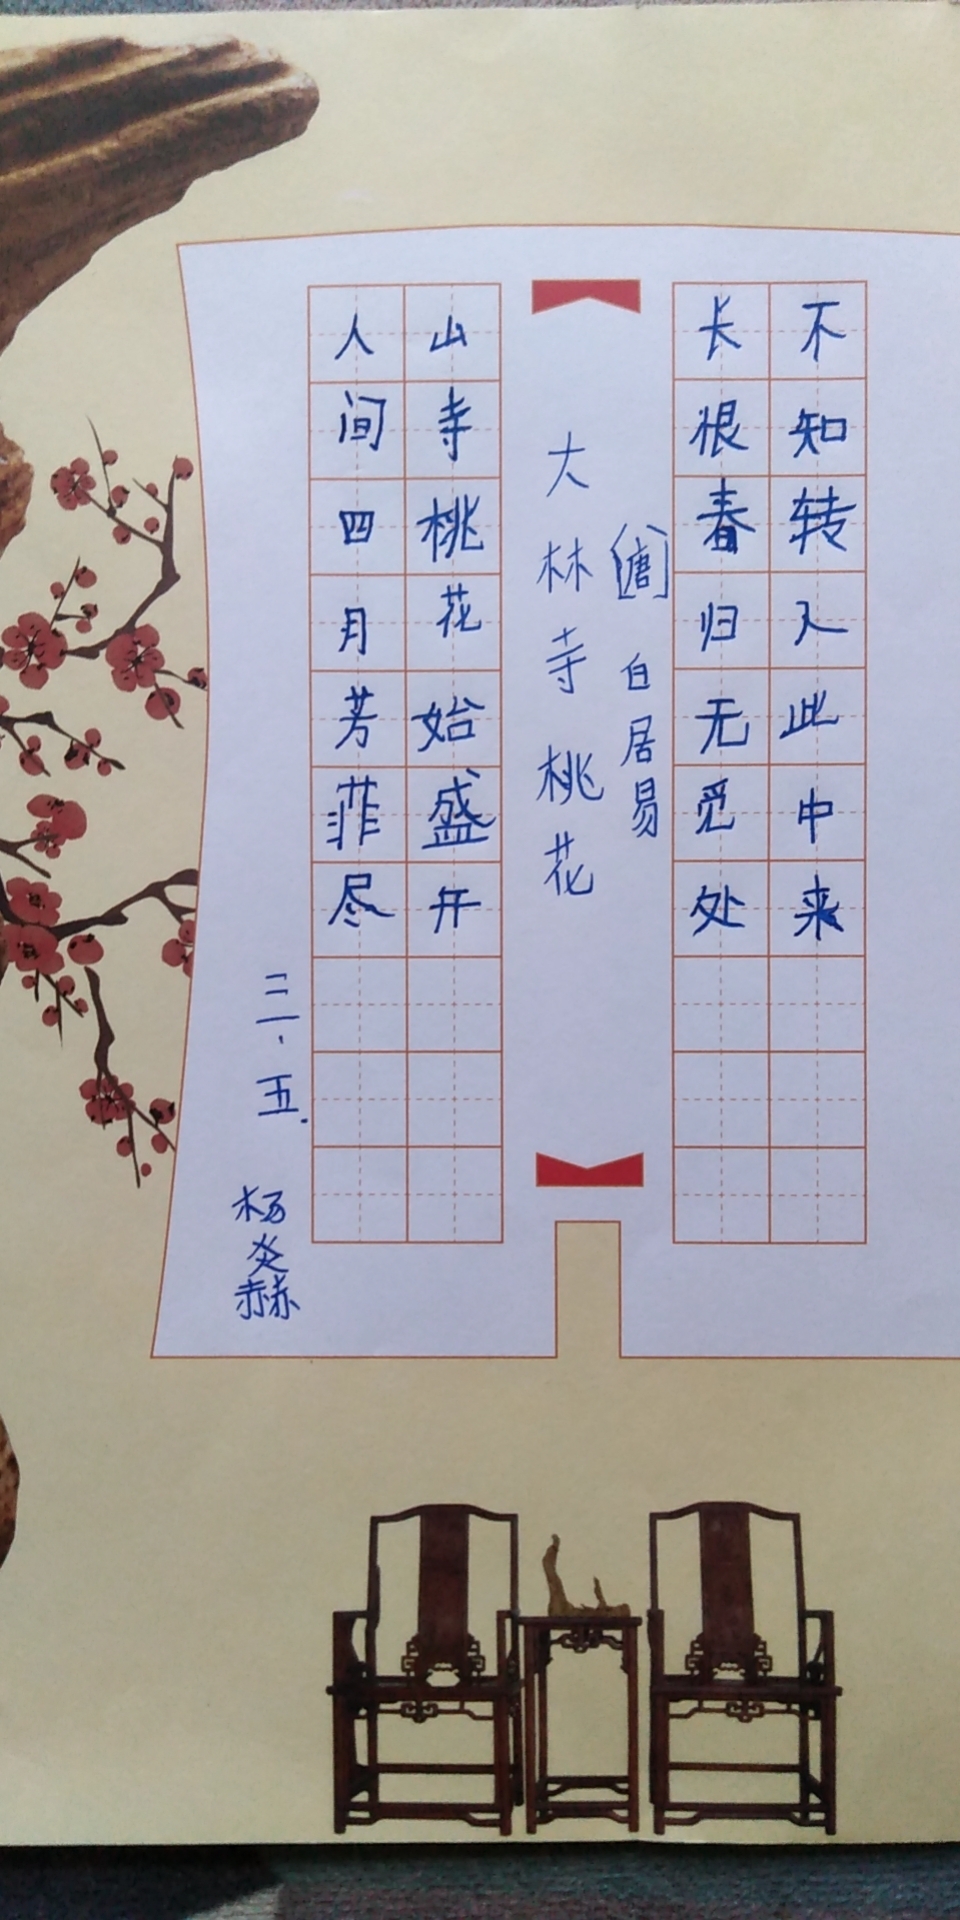 三、五.
杨炎赫
人间四月芳菲尽
山寺桃花始盛开
大林寺桃花
〔唐〕白居易
长恨春归无觅处
不知转入此中来